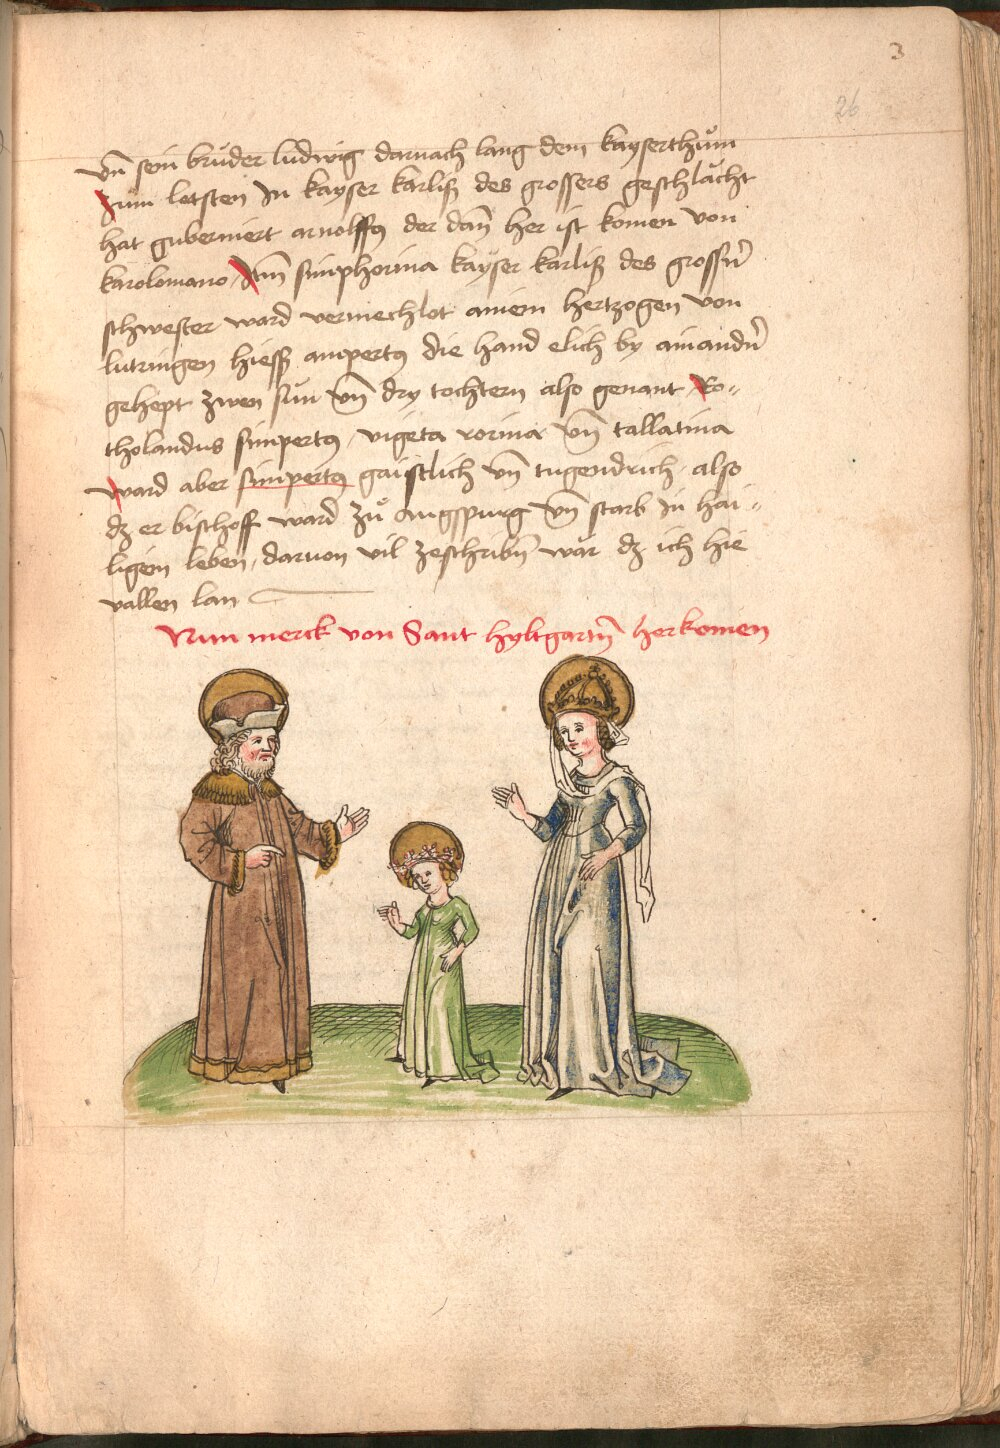 3
26
vn̄ sein bruͦder ludwig darnach lang dem kayserthuͦm
zum letsten In kayser karliß des grossers geschlaͤcht
hat guberniert arnolffꝰ der dañ her ist komen von
karolomano / Itm̄ simphorina kayser karliß des grossñ
schwester ward vermechlet ainem hertzogen von
lutringen hieß ampertꝰ die hand elich by ainandñ
gehept zwen suͤn vn̄ dry tochtern also genant Ro-
tholandus simpertꝰ / vigeta rorina vn̄ tallatina
ward aber simpertꝰ gaistlich vn̄ tugendrich / also
dz er bischoff ward zuͦ Augspurg vn̄ starb in hai-
ligem leben / daruon vil zeschribñ waͤr dz ich hie
vallen lan
Nun merck von Sant hyltgartñ herkomen